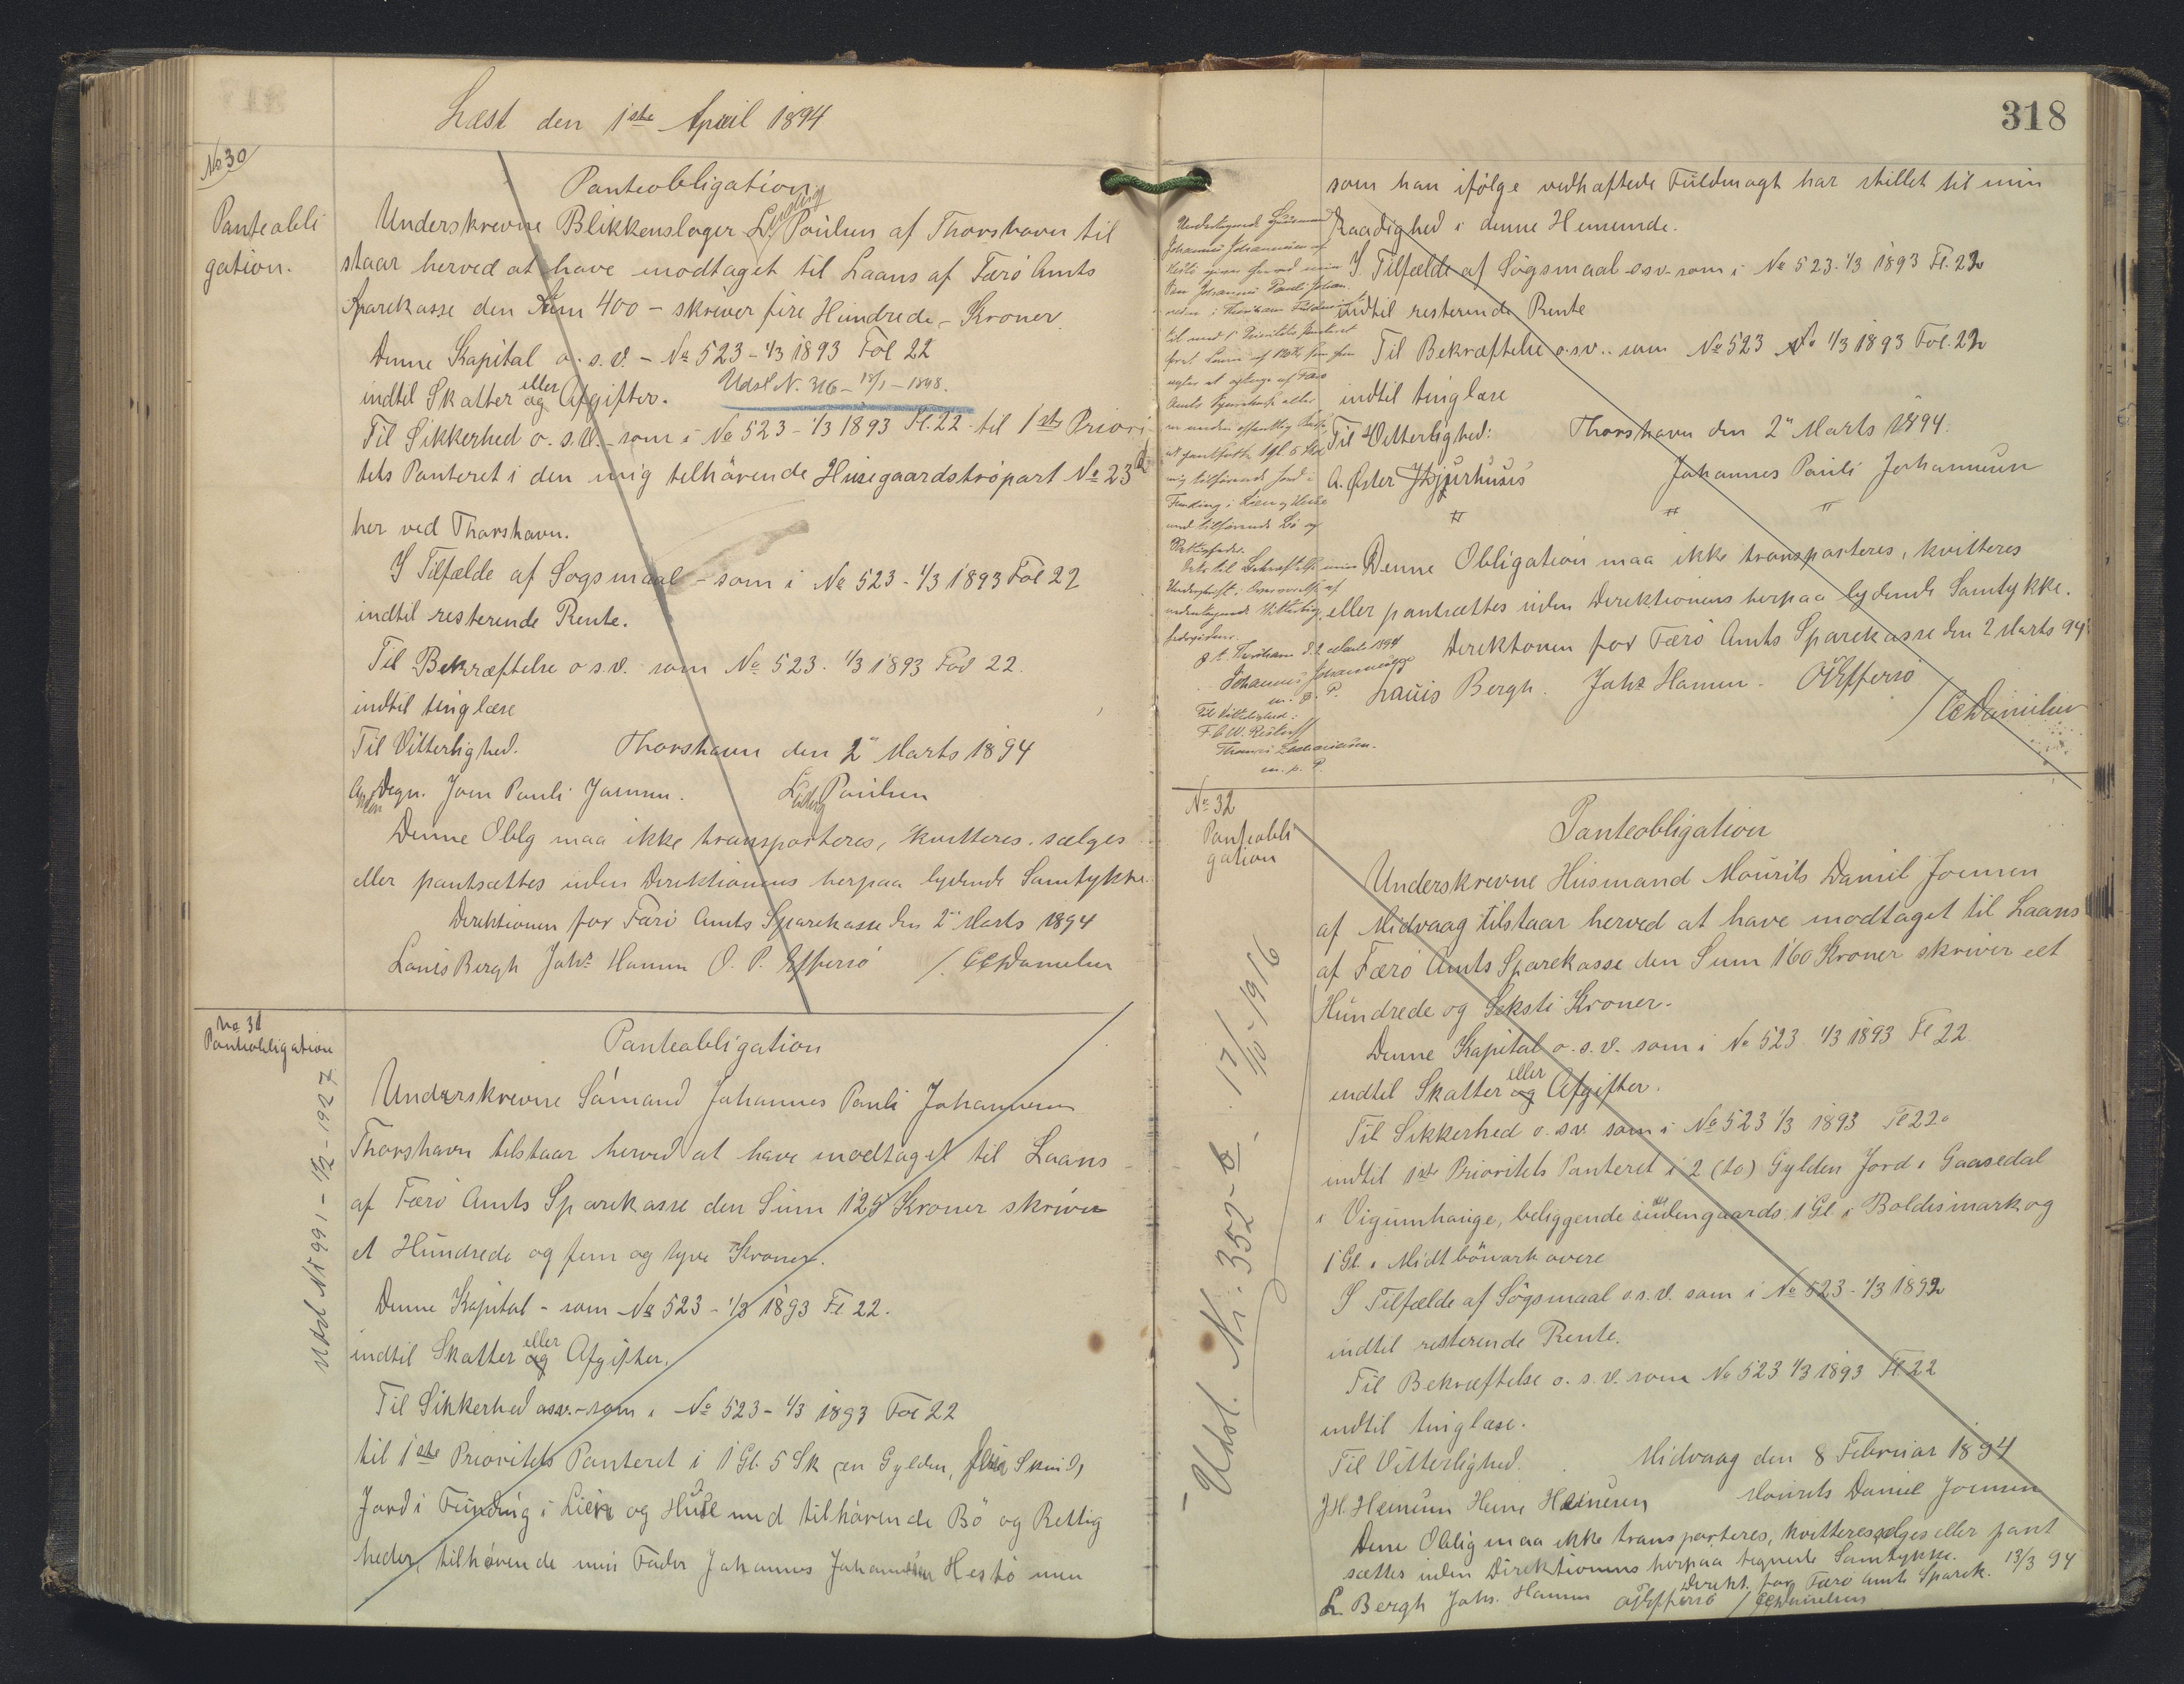 Læst den 1ste April 1894
No 30
Panteobli
gation.
Panteobligation
Underskrevne Blikkenslager L. Ludvig Poulsen af Thorshavn til
staar herved at have modtaget til Laans af Færö Amts
Sparekasse den Sum 400 - skriver fire Hundrede - Kroner
Denne Kapital o. s. v. - No 523 - 1/3 1893 Fol 22
indtil Skatter og eller Afgifter. Udsl N. 316 - 18/1 - 1898.
Til Sikkerhed o. s. v. - som i No 523 - 1/3 1893 Fl. 22 til 1ste Priori
tets Panteret i den mig tilhörende Husegaardströpart No 23 d
her ved Thorshavn.
I Tilfælde af Sogsmaal - som i No 523 - 1/3 1893 Fol 22
indtil resterende Rente.
Til Bekræftelse o s. v. som No 523. 1/3 1893 Fol 22.
indtil tinglæse
Til Vitterlighed. Thorshavn den 2" Marts 1894
Degn. Joen Pauli Joensen. L Ludvig Poulsen
Denne Oblg maa ikke transporteres, kvitteres. sælges
eller pantsættes uden Direktionens herpaa lydende Samtykke
Direktionen for Færö Amts Sparekasse den 2" Marts 1894
Louis Bergh Johs Hansen O. P. Effersö / CCDanielsen
No 31
Panteobligation
Udsl Nr 991 - 1927
Panteobligation
Underskrevne Sömand Johannes Pauli Johannesen
Thorshavn tilstaar herved at have modtaget til Laans
af Færö Amts Sparekasse den Sum 125 Kroner skriver
et Hundrede og fem og tyve Kroner.
Denne Kapital - som No 523 - 1/3 1893 Fl 22.
indtil Skatter og eller Afgifter.
Til Sikkerhed osv. - som i No 523 - 1/3 1893 Fol 22
til 1ste Prioritets Panteret i 1 Gl. 5 Sk (en Gylden, fem Skind)
Jord i Funding i Lien og Huse med tilhörende Bö og Rettig
heder, tilhörende min Fader Johannes Johannesen Hestö men
318
som han ifölge vedhæftede Fuldmagt har stillet til min
Raadighed i denne Henseende.
I Tilfælde af Sögsmaal osv. som i No 523. 1/3 1893 Fl. 22
indtil resterende Rente
Til Bekræftelse o.s.v. som No 523 1/3 1893 Fol. 22
indtil tinglæse
Til Vitterlighed: Thorshavn den 2" Marts 1894.
A. Öster Johannes Pauli Johannesen
Denne Obligation maa ikke transporteres, kvitteres
eller pantsættes uden Direktionens herpaa lydende Samtykke.
Direktionen for Færö Amts Sparekasse den 2 Marts 94
Louis Bergh. Johs Hansen - OPEffersö
/ CCDanielsen
Johannes Johannesen af
Amts Sparekasse eller
Funding i Lien og Huse
med tilhörende Bö og
Rettigheder.
Dets til Bekræftelse min
Underskrift i Overværelse af
undertegnede Vitterlig
hedsvidner.
p. t. Thorshavn d. 2 Marts 1894
Johannes Johannesen
m. p. P.
Til Vitterlighed:
F. C. W. Restorff
m. p. P.
No 32
Panteobli
gation
Udsl. Nr. 352 - 17/10 - 1916
Panteobligation
Underskrevne Husmand Mourits Daniel Joensen
af Midvaag tilstaar herved at have modtaget til Laans
af Færö Amts Sparekasse den Sum 160 Kroner skriver eet
Hundrede og Seksti Kroner.
Denne Kapital o. s. v. som i No 523 1/3 1893 Fl 22.
indtil Skatter og eller Afgifter.
Til Sikkerhed o. s v. som i No 523 1/3 1893 Fl 22
indtil 1ste Prioritets Panteret i 2 (to) Gylden Jord i Gaasedal
i Vigumhauge, beliggende udengaards: 1 Gl i Boldismark og
1 Gl. i Midtbönark overe
I Tilfælde af Sögsmaal o. s. v. som i No 523 - 1/3 1892
indtil resterende Rente.
Til Bekræftelse o. s. v. som No 523 1/3 1893 Fl 22
indtil tinglæse.
Til Vitterlighed. Midvaag den 8 Februar 1894
Mourits Daniel Joensen
Denne Oblig maa ikke transporteres, kvitteres sælges eller pant
sættes uden Direktionens herpaa tegnede Samtykke.
Direkt. for Færö Amts Sparek. 13/3 94
L. Bergh Johs. Hansen OPEffersö / CCDanielsen